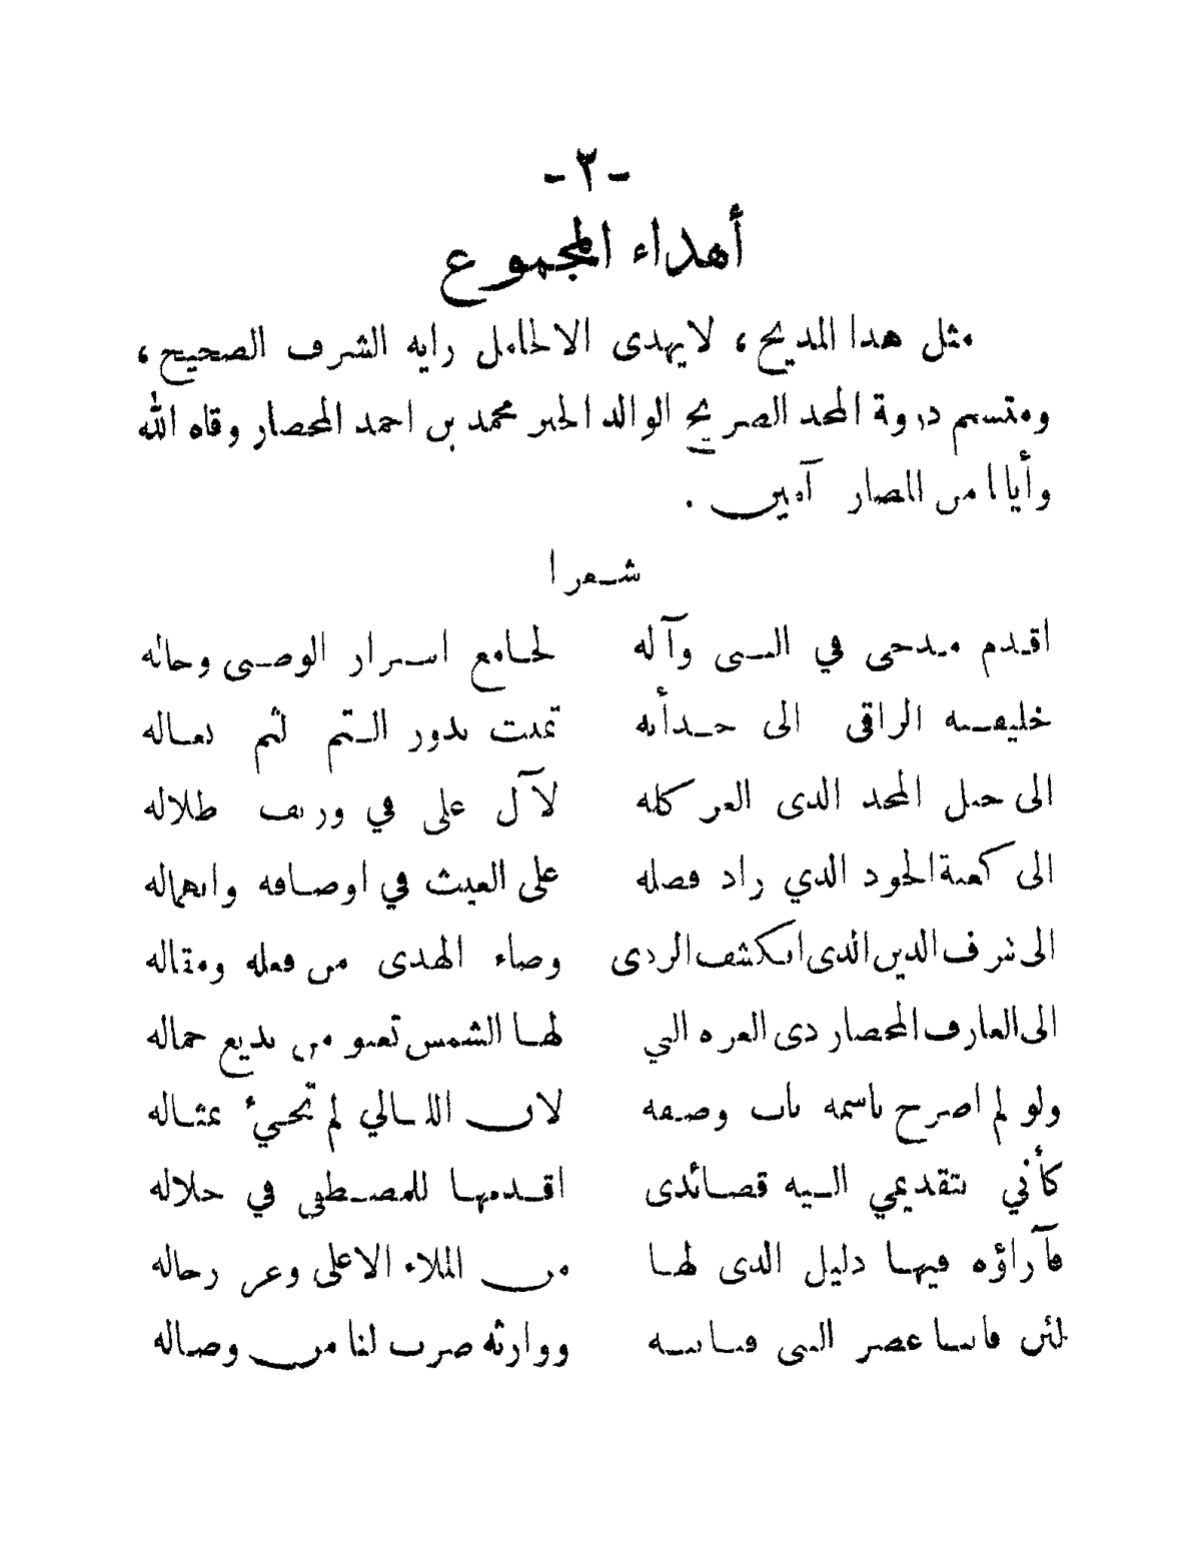 -٣-
أهداء المجموع
مثل هذا المديح، لايهدى الا لحامل راية الشرف الصحيح،
ومتسم ذروة المجد الصريح الوالد الحبر محمد بن احمد المحضار وقاه الله
وأيانا من المضار آمين.
شعرا
اقدم مدحى في النبى وآله لجامع اسرار الوصى وحاله
خليفته الراقى الى حدأته تمنت بدور التم لثم نعاله
الى جبل المجد الذى العز كله لآل على في وريف ظلاله
الى كعبة الجود الذي زاد فضله على الغيث في اوصافه وانهماله
الى شرف الدين الذى انكشف الردى وضاء الهدى من فعله ومقاله
الى العارف المحضار ذى الغره التي لها الشمس تعنو من بديع جماله
ولو لم اصرح باسمه ناب وصفه لان الليالي لم تجيء بمثاله
كأني بتقديمي اليه قصائدى اقدمها للمصطفى في جلاله
فآراؤه فيها دليل الذى لها من الملاء الاعلى وعز رجاله
لئن فاتنا عصر النبى فنا به ووارثه ضرب لنا من وصاله